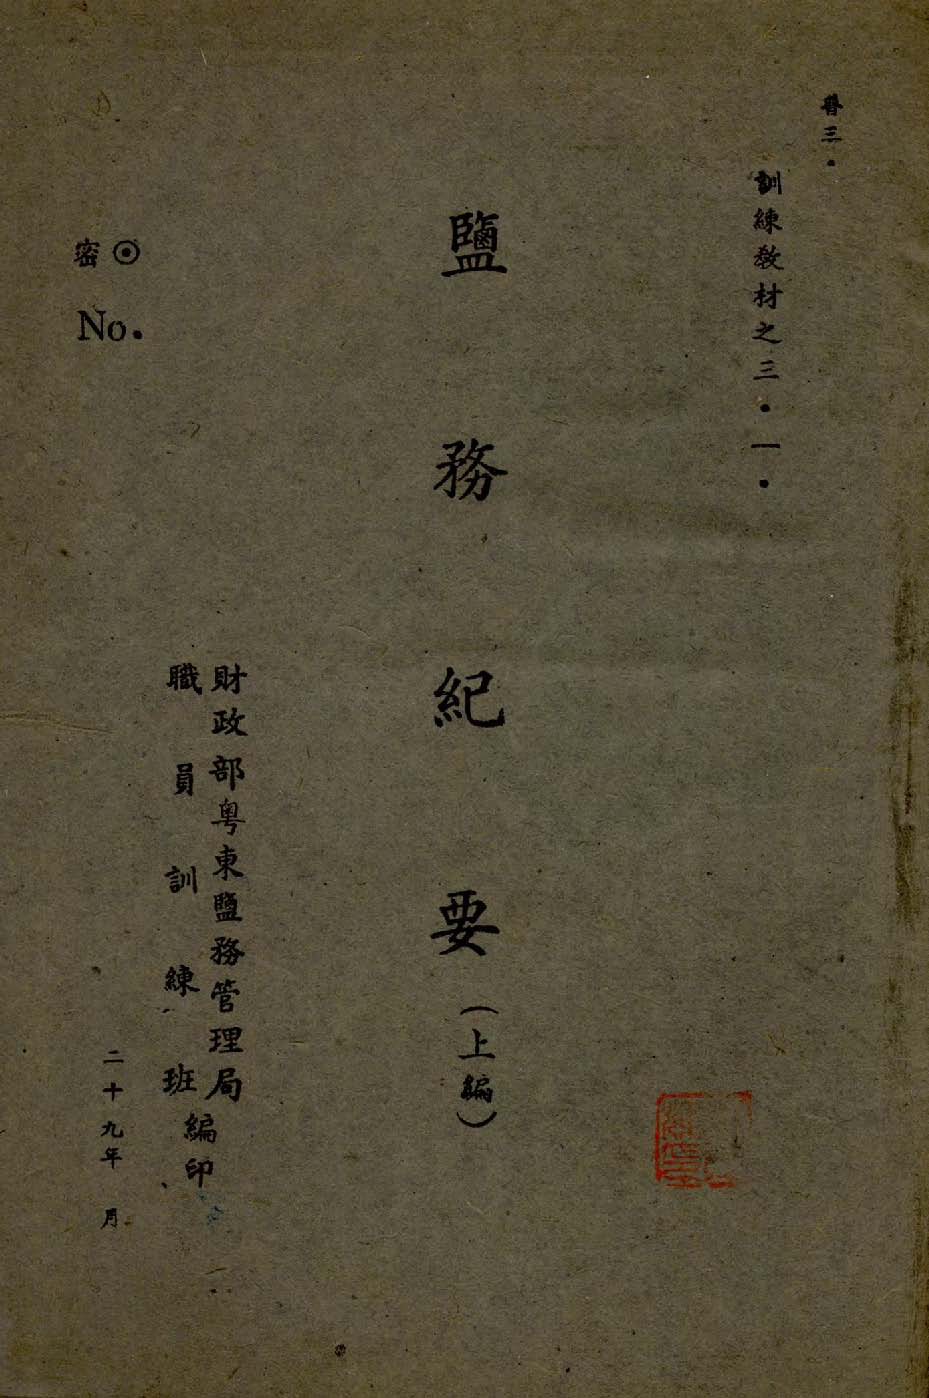 普三．
訓練教材之三．一．
鹽務紀要（上編）
財政部粤東鹽務管理局
職員訓練班
編印
二十九年　月
密⊙
No.